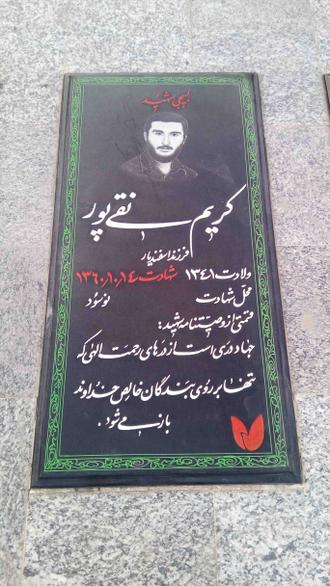 بسیجی شهید
کریم نقی پور
فرزند اسفندیار
ولادت ۱۳۴۱ شهادت ۱۳۶۰،۱۰،۱۴
محل شهادت نوسود
قسمتی از وصیتنامه شهید:
جهاد دری است از درهای رحمت الهی که
تنها بر روی بندگان خالص خداوند
باز می شود.